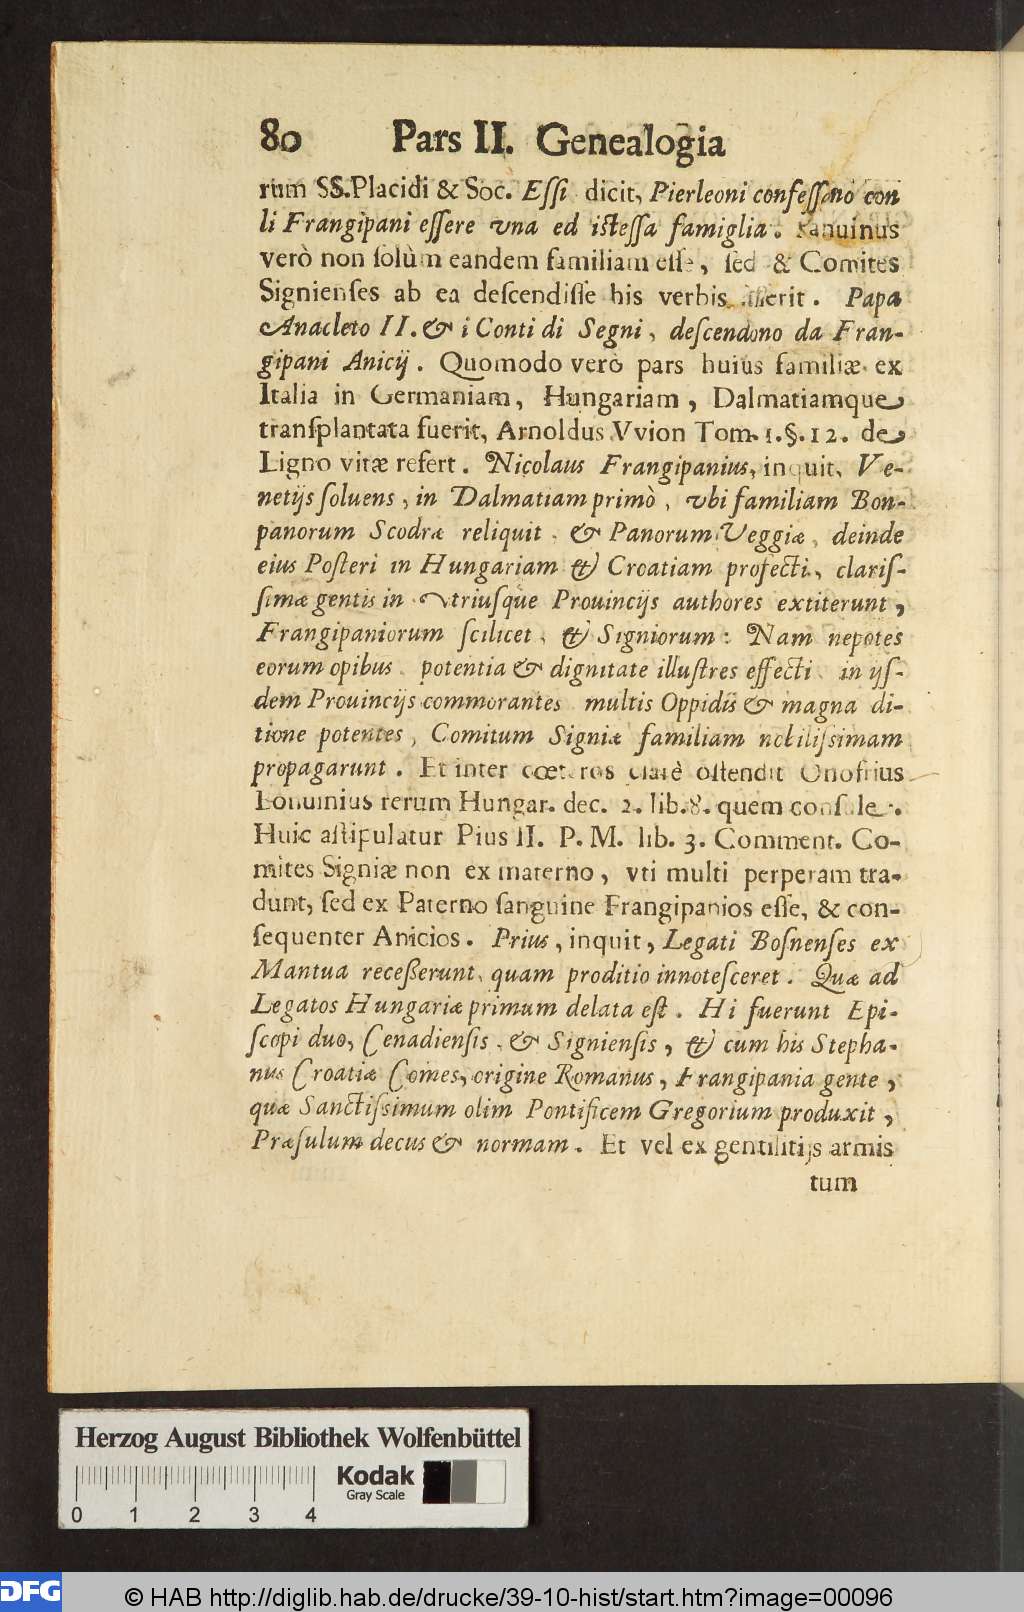 80 Pars II. Genealogia
rum SS. Placidi & Soc. Eſſi dicit, Pierleoni confeſſano con
li Frangipani eſſere vna ed iſteſſa famiglia. Panuinus
verò non ſolùm eandem familiam eſſe, ſed & Comites
Signienſes ab ea deſcendiſſe his verbis aſſerit. Papa
Anacleto II. & i Conti di Segni, deſcendono da Fran-
gipani Anicij. Quomodo verò pars huius familiæ ex
Italia in Germaniam, Hungariam, Dalmatiamque
tranſplantata fuerit, Arnoldus Vvion Tom. 1. §. 12. de
Ligno vitæ refert. Nicolaus Frangipanius, inquit, Ve-
netijs ſoluens, in Dalmatiam primò, vbi familiam Bon-
panorum Scodræ reliquit, & Panorum Veggiæ, deinde
eius Poſteri in Hungariam & Croatiam profecti, clariſ-
ſimæ gentis in vtriuſque Prouincijs authores extiterunt,
Frangipaniorum ſcilicet, & Signiorum: Nam nepotes
eorum opibus potentia & dignitate illuſtres effecti in ijſ-
dem Prouincijs commorantes multis Oppidis & magna di-
tione potentes, Comitum Signiæ familiam nobiliſsimam
propagarunt. Et inter cœteros clarè oſtendit Onofrius
rerum Hungar. dec. 2. lib. 8. quem conſule.
Huic aſtipulatur Pius II. P. M. lib. 3. Comment. Co-
mites Signiæ non ex materno, vti multi perperam tra-
dunt, ſed ex Paterno ſanguine Frangipanios eſſe, & con-
ſequenter Anicios. Prius, inquit, Legati Boſnenſes ex
Mantua receßerunt, quam proditio innoteſceret. Quæ ad
Legatos Hungariæ primum delata eſt. Hi fuerunt Epi-
ſcopi duo, Cenadienſis, & Signienſis, & cum his Stepha-
nus Croatiæ Comes, origine Romanus, Frangipania gente,
quæ Sanctiſsimum olim Pontificem Gregorium produxit,
Præſulum decus & normam. Et vel ex gentilitijs armis
tum
Herzog August Bibliothek Wolfenbüttel
Kodak
Gray Scale
0 1 2 3 4
DFG
© HAB http://diglib.hab.de/drucke/39-10-hist/start.htm?image=00096